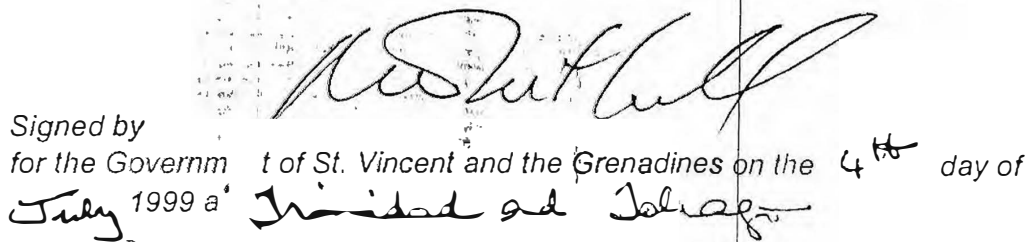 Signed by
for the Governm t of St. Vincent and the Grenadines on the 4th day of
July 1999 a Trinidad and Tobago